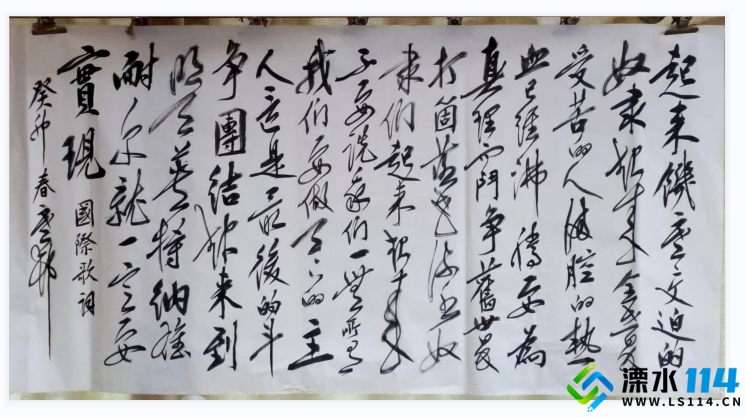 起来饑寒交迫的
奴隶起来全世界
受苦的人满腔的热
血已经沸腾要为
真理而鬥争舊世界
打箇落花流水奴
隶们起来起来
不要说我们一無所有
我们要做天下的主
人这是最後的斗
争團结起来到
明天英特纳雄
耐尔就一定要
實現
國際歌词
癸卯春
溧水114
WWW.LS114.CN